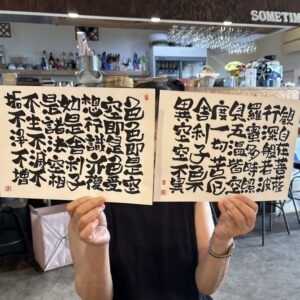 SOMETIM
観自在菩薩
行深般若波
羅蜜多時照
見五蘊皆空
度一切苦厄
舎利子色不
異空空不異
色色即是空
空即是色受
想行識亦復
如是舎利子
是諸法空相
不生不滅不
垢不浄不増